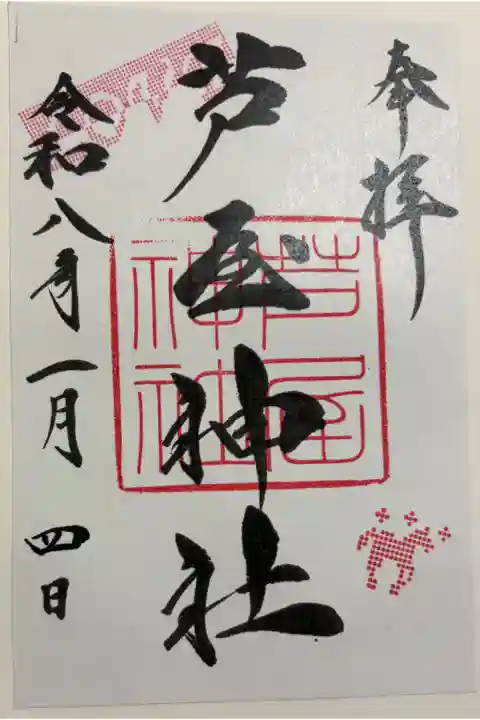 奉拝
芦屋神社
芦屋神社
令和八年一月四日